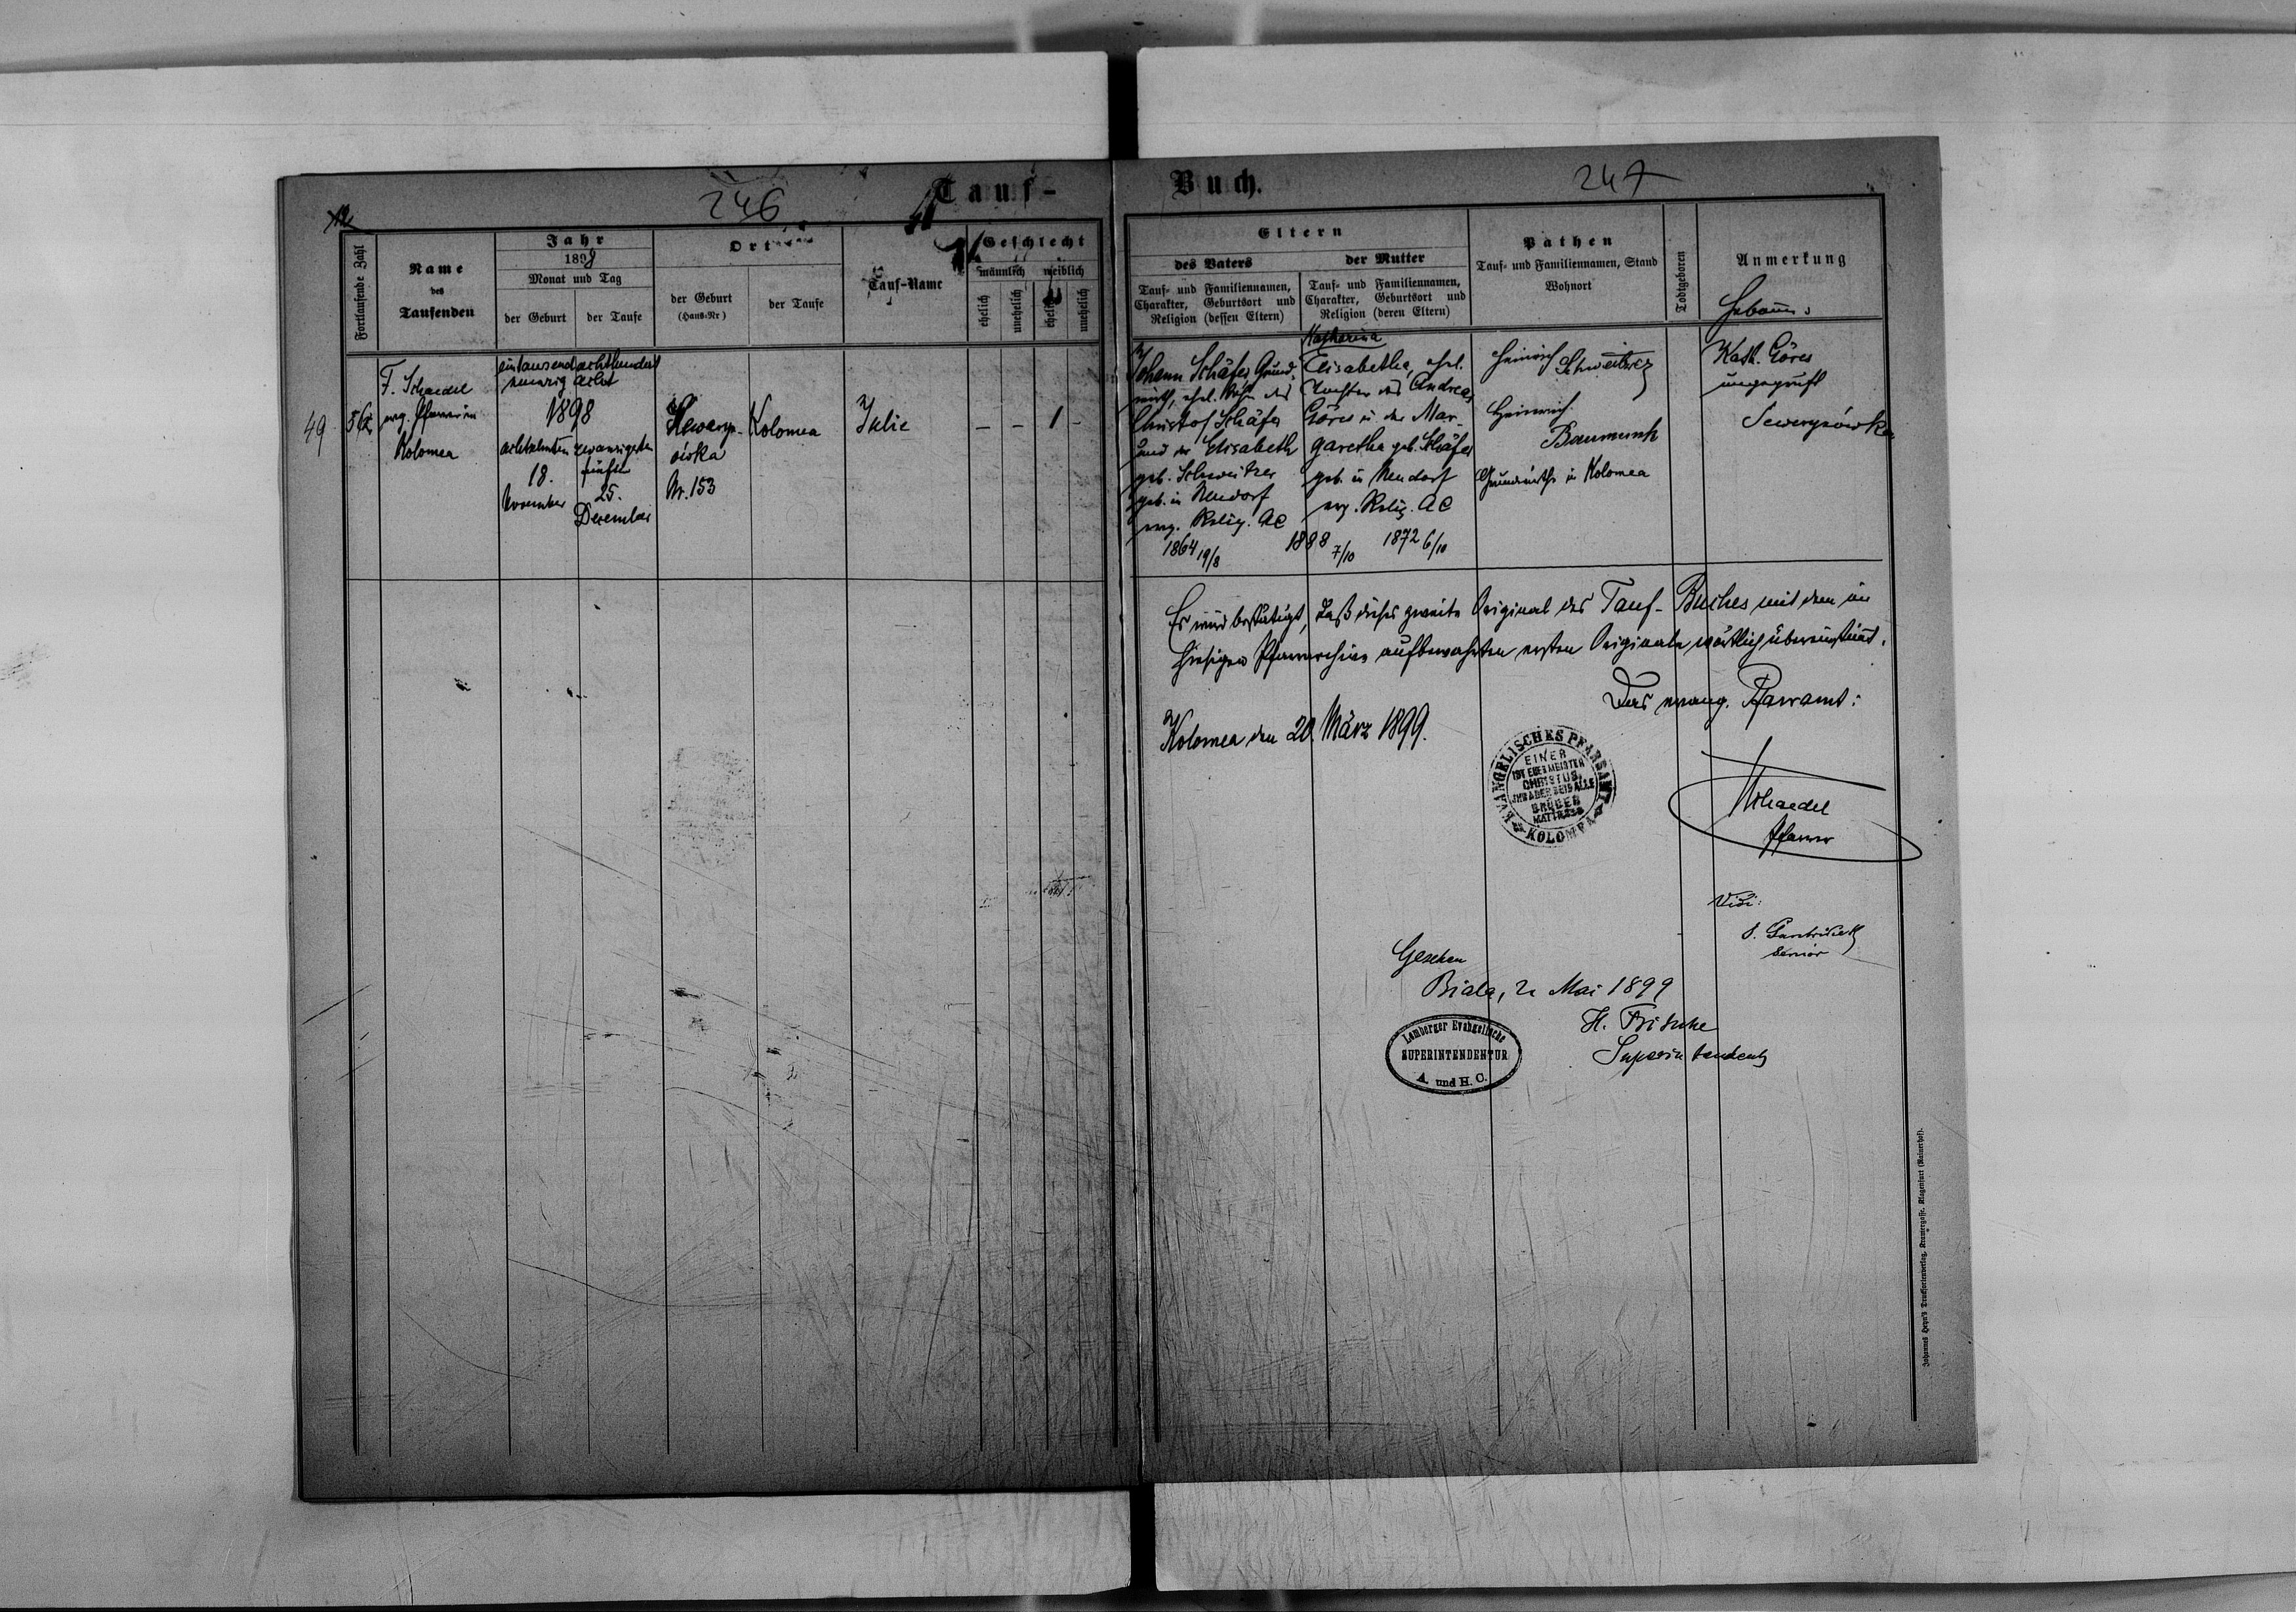 246
Tauf-
Buch.
247
Fortlaufende Zahl
Name
des
Taufenden
Jahr
1898
Monat und Tag
der Geburt
der Taufe
Ort
der Geburt
(Haus-Nr)
der Taufe
Tauf-Name
Geschlecht
männlich
weiblich
ehelich
unehelich
ehelich
unehelich
Eltern
des Vaters
Tauf- und Familiennamen,
Charakter, Geburtsort und
Religion (dessen Eltern)
der Mutter
Tauf- und Familiennamen,
Charakter, Geburtsort und
Religion (deren Eltern)
Pathen
Tauf- und Familiennamen, Stand
Wohnort
Todtgeboren
Anmerkung
49
F. Schaedel
evg. Pfarrer in
Kolomea
eintausendachthundert
neunzig acht
1898
achtzehnten
18.
November
zwanzigsten
fünften
25.
December
Seweryn-
ówka
Nr. 153
Kolomea
Julie
– – 1 –
Johann Schäfer Grund-
wirth, ehel. Sohn des
Christof Schäfer
und der Elisabeth
geb. Schweitzer
geb. in Neudorf
evg. Relig. AC
1864 19/8
1888 7/10
Katharina
Elisabetha, ehel.
Tochter des Andreas
Göres u. der Mar-
garetha geb. Schäfer
geb. in Neudorf
evg. Relig. AC
1872 6/10
Heinrich
Schweitzer
Heinrich
Baumunk
Grundwirthe in Kolomea
Kath. Göres
ungeprüft
Sewerynówka
Es wird bestätigt, daß dieses zweite Original des Tauf-Buches mit dem im
hiesigen Pfarrarchive aufbewahrten ersten Originale wörtlich übereinstimt.
Das evang. Pfarramt:
Kolomea den 20. März 1899.
EVANGELISCHES PFARRAMT
KOLOMEA
EINER
IST EUER MEISTER
CHRISTUS,
IHR ABER SEID ALLE
BRÜDER
Schaedel
Pfarrer
Vidi:
Senior
Gesehen
Biala, 2 Mai 1899
H. Fritsche
Superintendent
Lemberger Evangelische
SUPERINTENDENTUR
A. und H. C.
Johannes Heyn's Drucksortenverlag, Kramergasse, Klagenfurt (Rainerhof).